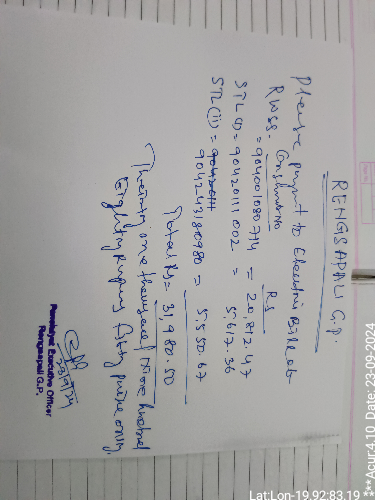 RENGSAPALI G.P.
Please payment to Electric Bill ab
RWSS - Consumer No Rs
= 904001080714 = 20,812.47
STL (I) = 90420111002 = 5,617.36
STL (II) = 90420111
904243180980 = 5,550.67
Total Rs = 31,980.50
Thirty one thousand Nine hundred
Eighty Rupees fifty paise only,
23/9/24
Panchayat Executive Officer
Rengsapali G.P.
Lat:Lon-19.92:83.19 ***Acur:4.10 Date: 23-09-2024